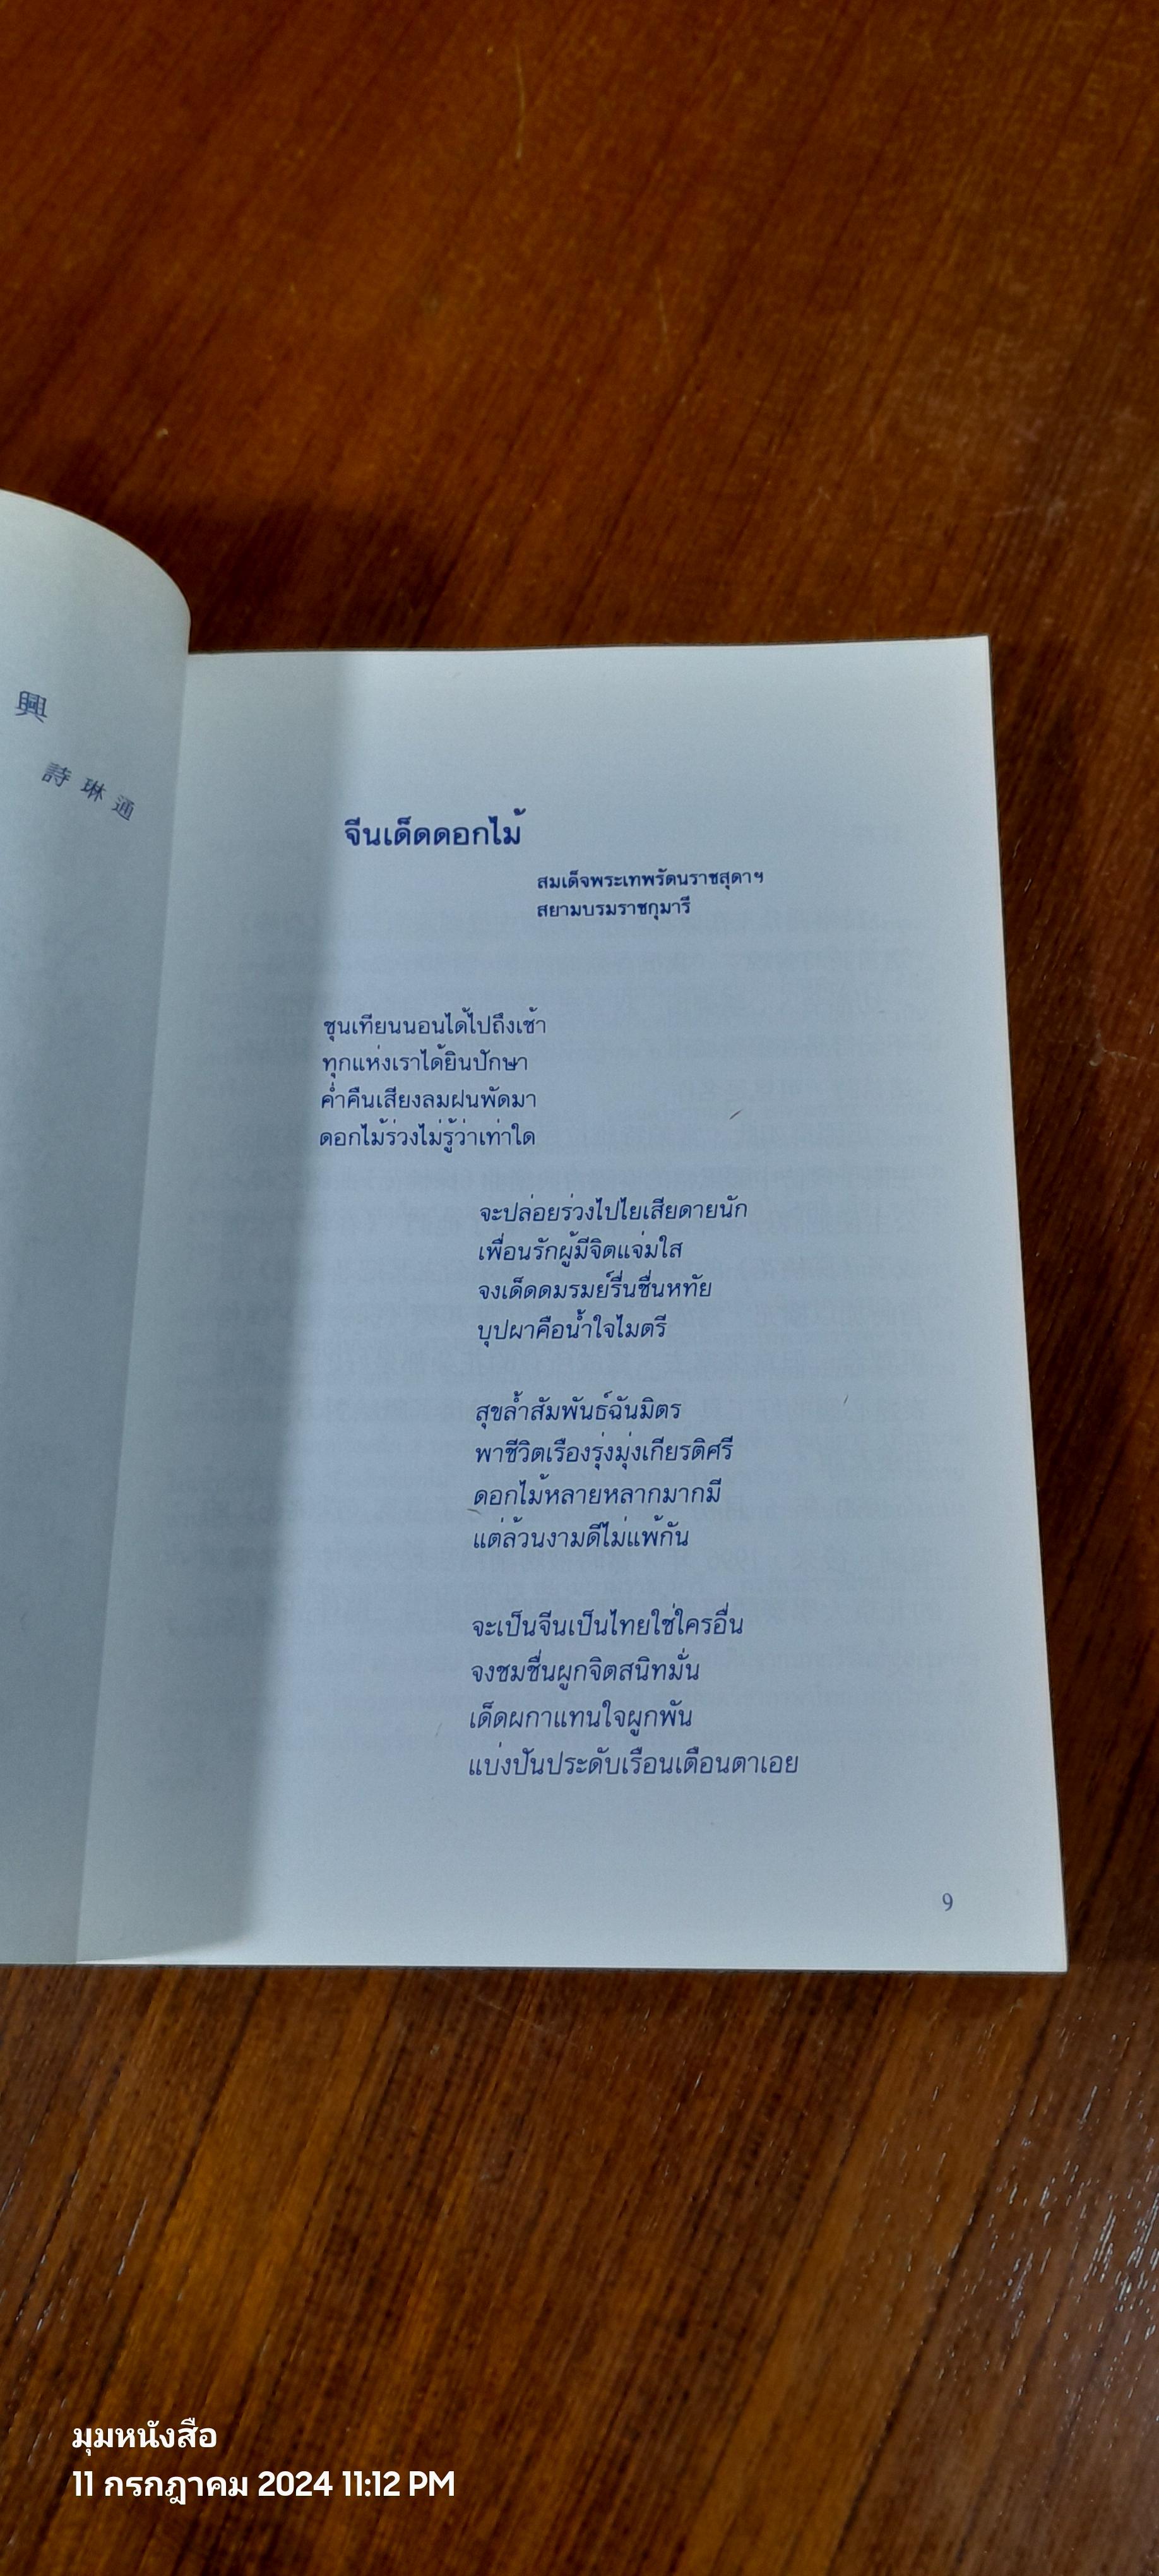 興
詩琳通
จีนเด็ดดอกไม้
สมเด็จพระเทพรัตนราชสุดาฯ
สยามบรมราชกุมารี
ชุนเทียนนอนได้ไปถึงเช้า
ทุกแห่งเราได้ยินปักษา
ค่ำคืนเสียงลมฝนพัดมา
ดอกไม้ร่วงไม่รู้ว่าเท่าใด
จะปล่อยร่วงไปไยเสียดายนัก
เพื่อนรักผู้มีจิตแจ่มใส
จงเด็ดดมรมย์รื่นชื่นหทัย
บุปผาคือน้ำใจไมตรี
สุขล้ำสัมพันธ์ฉันมิตร
พาชีวิตเรืองรุ่งมุ่งเกียรติศรี
ดอกไม้หลายหลากมากมี
แต่ล้วนงามดีไม่แพ้กัน
จะเป็นจีนเป็นไทยใช่ใครอื่น
จงชมชื่นผูกจิตสนิทมั่น
เด็ดผกาแทนใจผูกพัน
แบ่งปันประดับเรือนเตือนตาเอย
9
มุมหนังสือ
11 กรกฎาคม 2024 11:12 PM